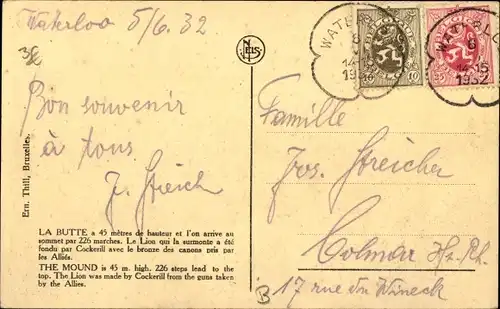 Waterloo 5/6. 32
NELS
WATERLO
8
14-15
1932
10 10
WATERLOO
8
14-15
1932
Bon souvenir
à tous
J. Streich
Famille
Jos. Streicher
Colmar Ht. Rh.
17 rue du Wineck
Ern. Thill, Bruxelles.
LA BUTTE a 45 mètres de hauteur et l'on arrive au
sommet par 226 marches. Le Lion qui la surmonte a été
fondu par Cockerill avec le bronze des canons pris par
les Alliés.
THE MOUND is 45 m. high. 226 steps lead to the
top. The Lion was made by Cockerill from the guns taken
by the Allies.
B